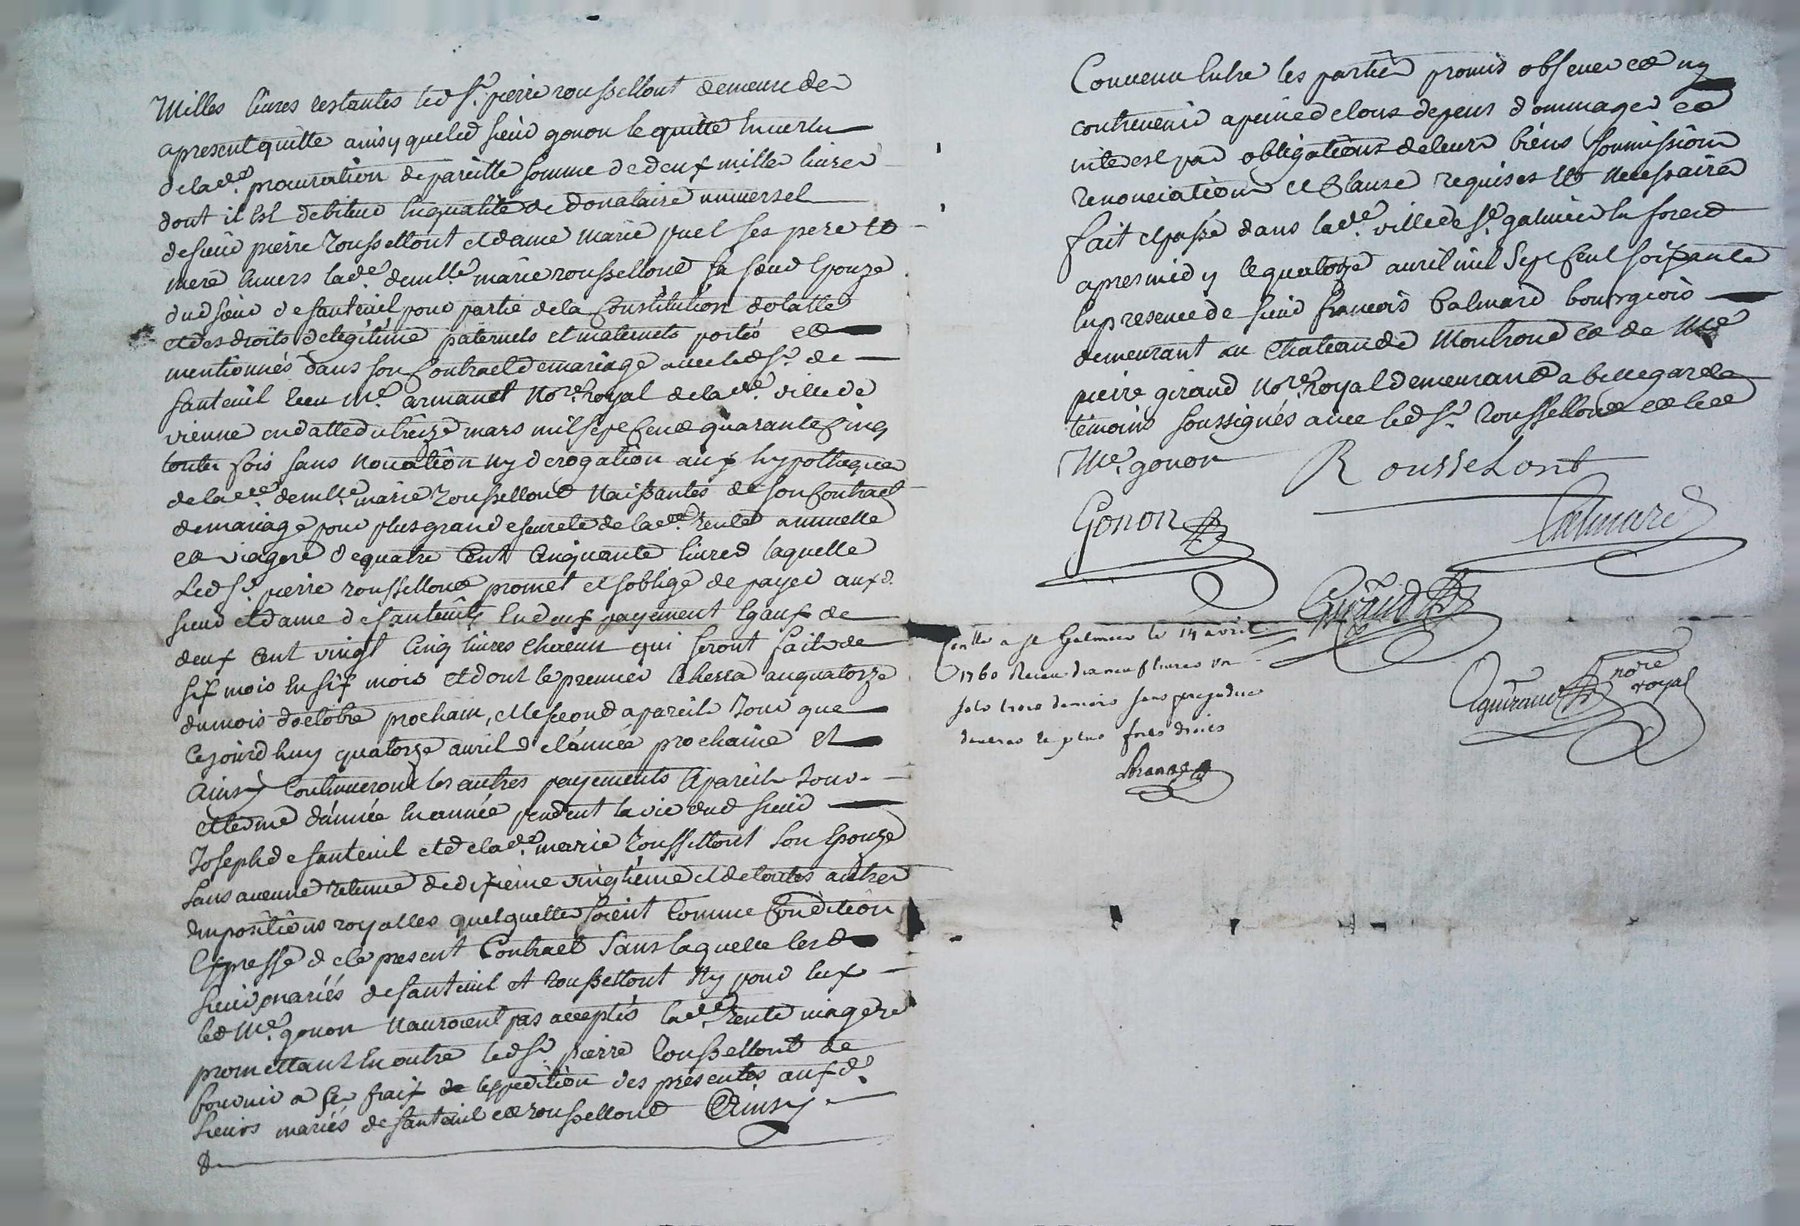 Milles livres restantes led sr. pierre roussellont demeurder
apresent quitte ainsy queled sieur gonon le quitte en vertu
delade. procuration de pareille somme de deux mille livres
dont il est debiteur en qualité de donataire universel
de sieur pierre roussellont et dame marie puel ses pere et
mere envers lade. demlle. marie roussellont sa soeur epouze
dud sieur desauteuil pour partie dela constitution dotalle
et des droits de legitime paternels et maternels portés et
mentionnés dans son contract de mariage avec led sr. de
sauteuil reçu Me. armanet Nore. royal de lade. ville de
vienne en datte du treize mars mil sept cent quarante cinq
toutes fois sans novation ny derogation aux hypotheques
de lade. demlle. marie roussellont Naissantes de son contract
demariage pour plus grande seureté de lade. rente annuelle
et viagere de quatre cent cinquante livres laquelle
Led sr. pierre roussellont promet et s'oblige de payer auxd.
sieur et dame desauteuil en deux payement egaux de
deux cent vingt cinq livres chacun qui seront faits de
six mois en six mois et dont le premier echerra au quatorze
du mois d'octobre prochain, et le second a pareil jour que
cejourd'huy quatorze avril de l'année prochaine et
Ainsy continueront les autres payements a pareils jour
et terme d'année en année pendent la vie dud sieur
Joseph desauteuil et de lade. marie roussellont son epouze
sans aucune retenue de dixieme vingtieme et de toutes autres
impositions royalles quelquelles soient comme condition
expresse de ce present Contract sans laquelle lesd
sieur mariés desauteuil et roussellont Ny pour eux
led Me. gonon n'auroient pas acceptés lade. rente viagere
promettant en outre led sr. pierre roussellont de
fournir a ses fraix de expedition des presentes auxd.
sieurs mariés desauteuil et roussellont Ainsy
Convenu entre les parties promis observer et ny
contrevenir a peine de tous depens dommages et
interest par obligations de leurs biens soumissions
renonciations et clause requises et necessaires
fait et passé dans lade. ville de st. galmier en forest
apres midy le quatorze avril mil sept cent soixante
en presence de sieur françois Calmard bourgeois
demeurant au Chateau de Montrond et de Me.
pierre giraud Nore. royal demeurant a bellegarde
témoins soussignés avec led sr. roussellont et led
Me. gonon
RousseLont
Gonon
Calmard
Giraud
Conlle a st Galmier le 14 avril
1760 Receu dixneuf livres un
sols trois deniers sans prejudice
de plus forts droits
aguiraud nore royal